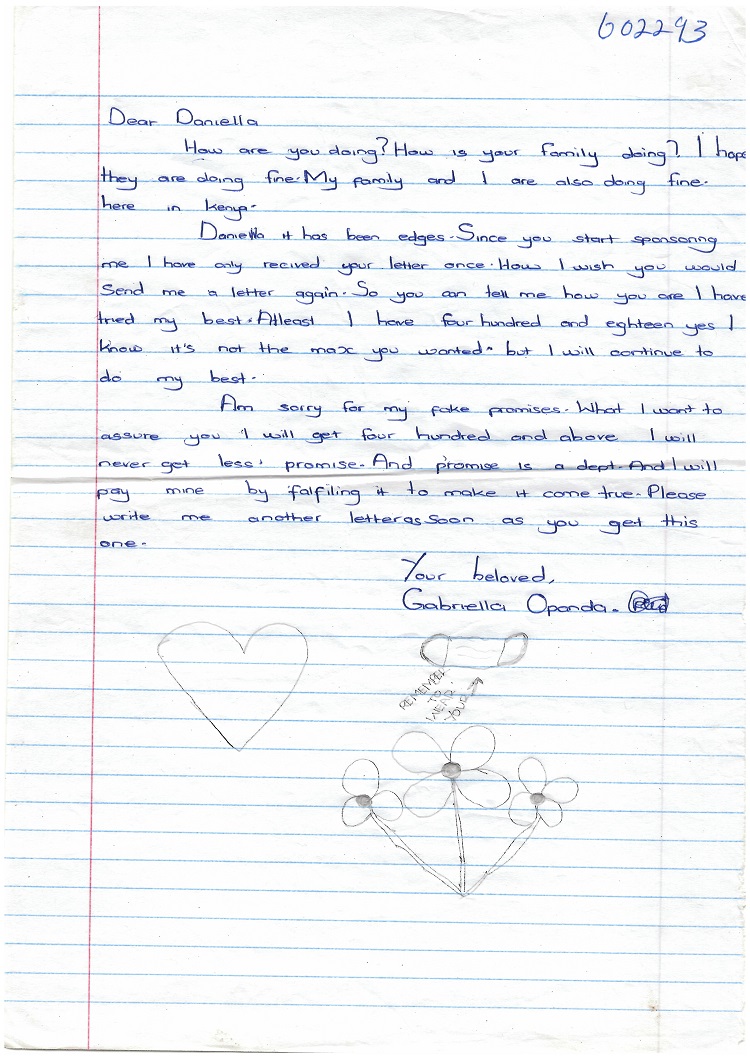 602293
Dear Daniella
How are you doing? How is your family doing? I hope
they are doing fine. My family and I are also doing fine.
here in Kenya.
Daniella it has been edges. Since you start sponsoring
me I have only recived your letter once. How I wish you would
Send me a letter again. So you can tell me how you are I have
tried my best. Atleast I have four hundred and eighteen yes I
know it's not the max you wanted. but I will continue to
do my best.
Am sorry for my fake promises. What I want to
assure you I will get four hundred and above I will
never get less, promise. And promise is a dept. And I will
pay mine by falfiling it to make it come true. Please
write me another letter as soon as you get this
one.
Your beloved,
Gabriella Opanda.
REMEMBER
TO
WEAR
YOUR